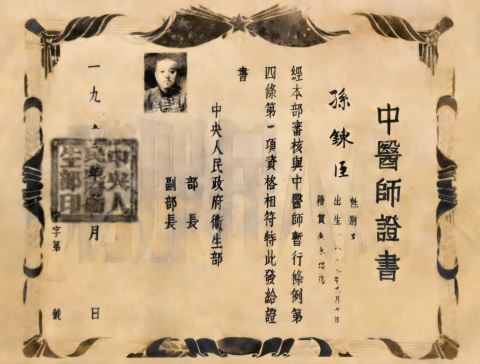 中醫師證書
孫鍊臣
性別
出生 年 月 日
籍貫
經本部審核與中醫師暫行條例第
四條第一項資格相符特此發給證
書
中央人民政府衛生部
部長
副部長
一九 年 月 日
中央人
民政府衛
生部印
中字第 號